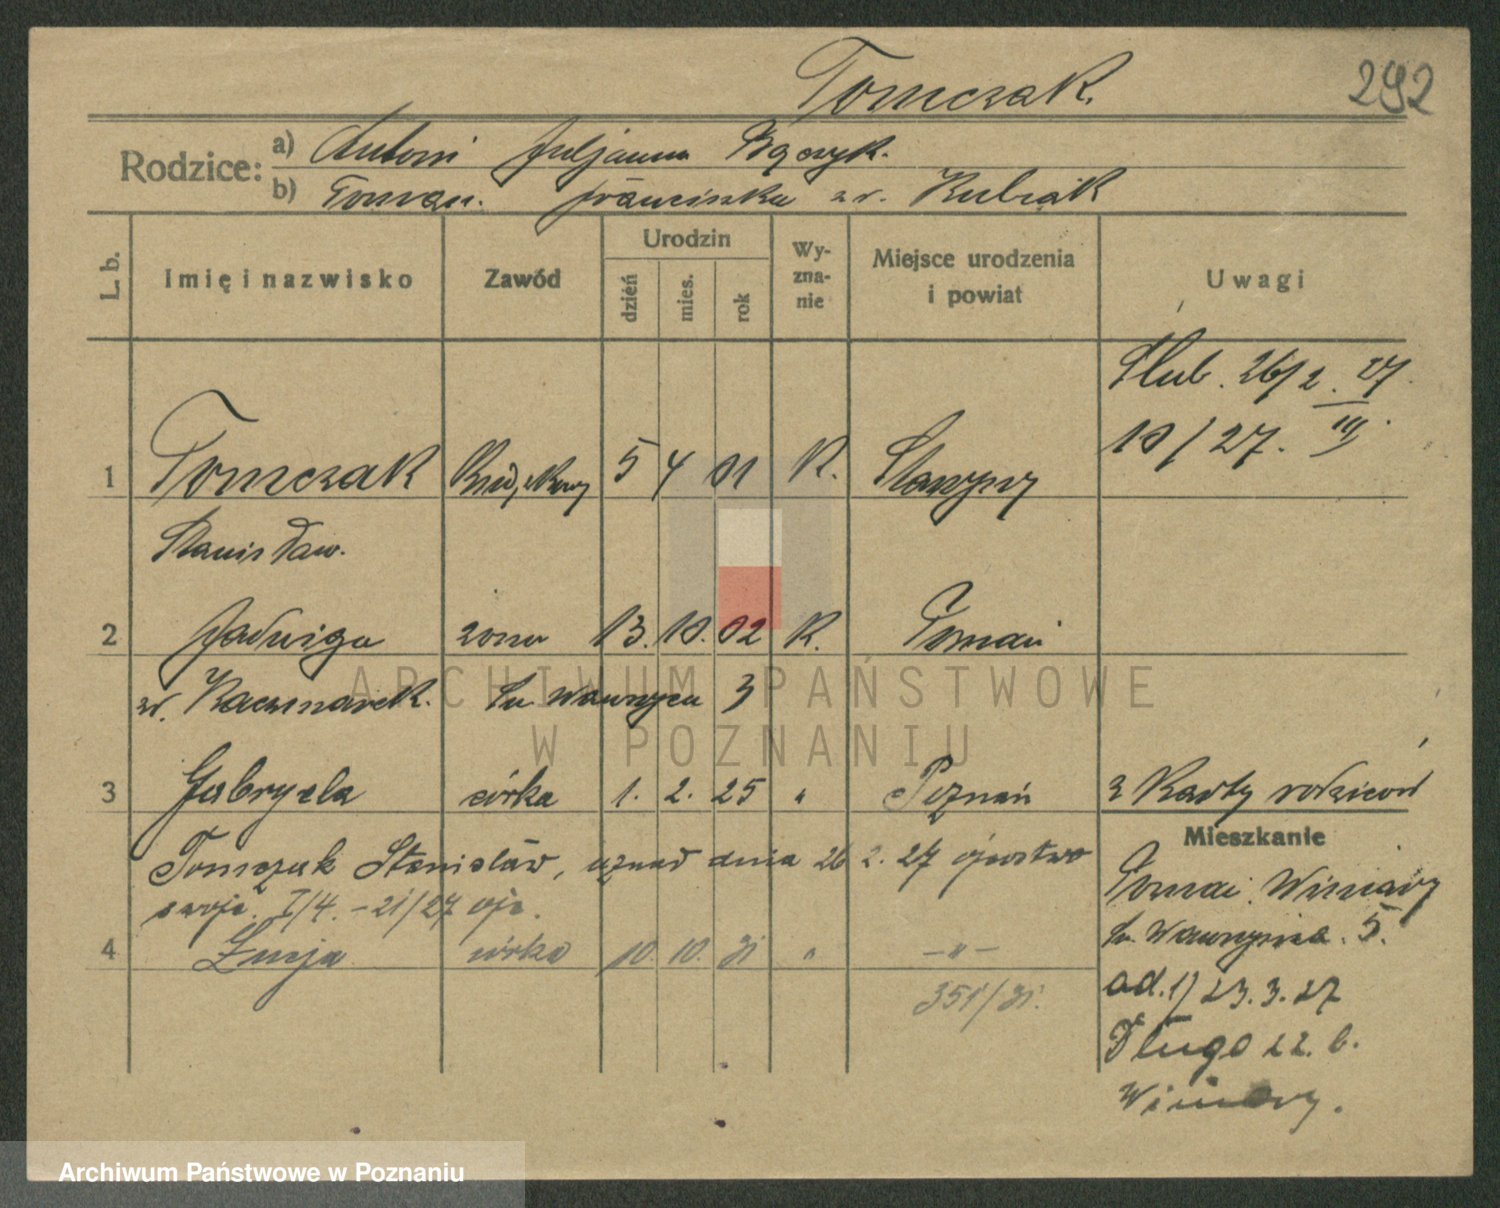 Tomczak.
292
Rodzice:
a) Antoni Juljanna Bączyk.
b) Tomasz. Franciszka zd. Kubiak
L. b.
Imię i nazwisko
Zawód
Urodzin
dzień
mies.
rok
Wy-
zna-
nie
Miejsce urodzenia
i powiat
Uwagi
Ślub. 26/2. 27
10/27. III.
1 Tomczak 5 4 01 K.
Stanisław.
2 Jadwiga żona 13. 10. 02 K.
zd. Kaczmarek. Św. Wawrzyńca 3
3 Gabryela córka 1. 2. 25 " Poznań z Karty rodziców
Mieszkanie
Tomczak Stanisław, uznał dnia 26 2. 27 ojcostwo
swoje. I/4. - 21/27 ojc.
Winiary
Św. Wawrzyńca. 5.
4 Łucja córka 10. 10. 31 " -"-
351/31.
ad. 1) 23. 3. 27
Długa 22. b.
Winiary.
ARCHIWUM PAŃSTWOWE
W POZNANIU
Archiwum Państwowe w Poznaniu